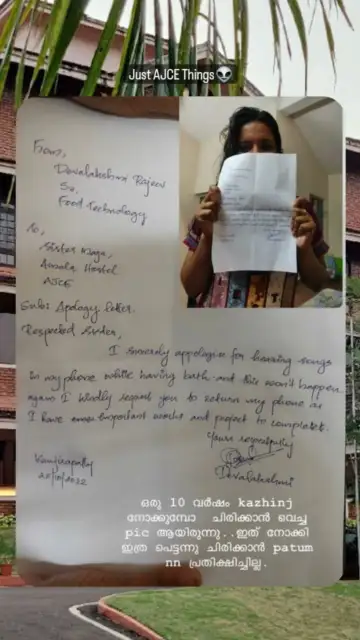 Just AJCE Things
From,
Devalakshmi Rajeev
S2,
Food Technology
To,
Sister
Amala Hostel
AJCE
Sub: Apology letter.
Respected Sister,
I sincerely appologise for hearing songs
in my phone while having bath and this won't happen
again I kindly request you to return my phone as
I have important works and project to complete.
Yours respectfully
Devalakshmi
Kanjirapally
20/10/2022
ഒരു 10 വർഷം kazhinj
നോക്കുമ്പോ ചിരിക്കാൻ വെച്ച
pic ആയിരുന്നു..ഇത് നോക്കി
ഇത്ര പെട്ടന്നു ചിരിക്കാൻ patum
nn പ്രതിക്ഷിച്ചില്ല.